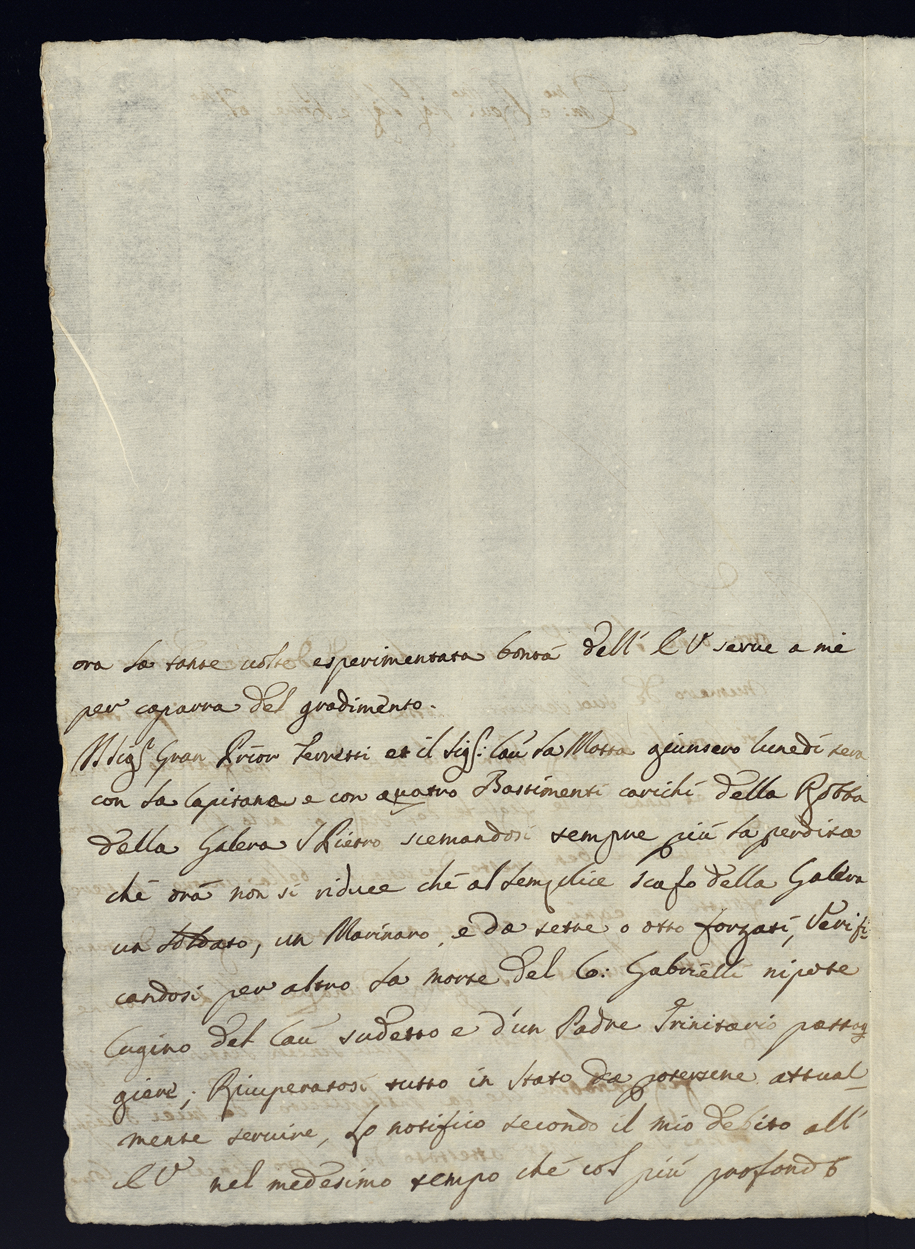 ora la tante volte esperimentata bontà dell' E V serve a me
per caparra del gradimento.
Il Sig.r Gran Prior Ferretti et il Sig.r Cav La Motta giunsero lunedì sera
con la Capitana e con quatro Bastimenti carichi della Robba
della Galera S Pietro scemandosi sempre più la perdita
chè orà non si riduce chè al semplice scafo della Galera
un soldato, un Marinaro, e da sette o otto forzati, Verifi-
candosi per altro la morte del C: Gabrielli nipote
Cugino del Cav sudetto e d'un Padre Trinitario passag
giere; Ricuperatosi tutto in stato da potersene attual-
mente servire, Lo notifico secondo il mio debito all'
E V nel medesimo tempo chè col più profondo